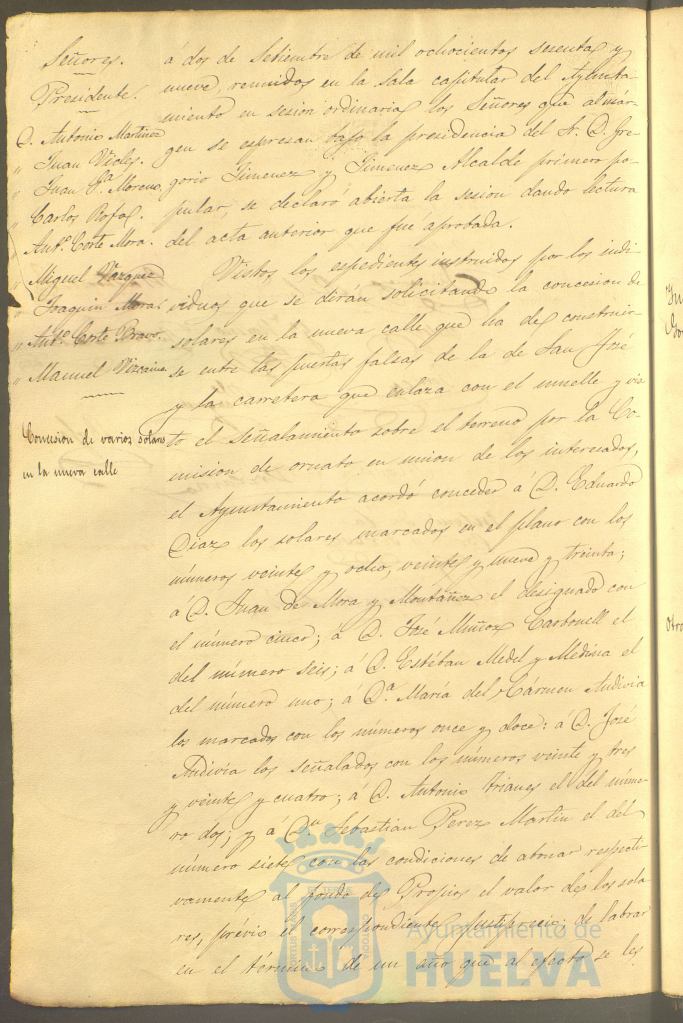 Señores.
Presidente.
D. Antonio Martinez
" Juan Vides.
" Juan P. Moreno
Carlos Rofa
" Ant.º Corte Mora.
" Miguel Vazquez
" Joaquin Mora.
" Ant.º Corte Bravo.
" Manuel Vizcaino
Concesion de varios solares
en la nueva calle
á dos de Setiembre de mil ochocientos sesenta y
nueve, reunidos en la sala capitular del Ayunta-
miento en sesion ordinaria los Señores que al már-
gen se espresan bajo la presidencia del Sr. D. Gre-
gorio Jimenez y Jimenez Alcalde primero po-
pular, se declaró abierta la sesion dando lectura
del acta anterior que fué aprobada.
Vistos los espedientes instruidos por los indi-
viduos que se dirán solicitando la concesion de
solares en la nueva calle que ha de construir-
se entre las puertas falsas de la de San José
y la carretera que enlaza con el muelle y vis-
to el señalamiento sobre el terreno por la Co-
mision de ornato en union de los interesados,
el Ayuntamiento acordó conceder á D. Eduardo
Diaz los solares marcados en el plano con los
números veinte y ocho, veinte y nueve y treinta;
á D. Juan de Mora y Montañez el designado con
el número cinco; á D. José Muñoz Carbonell el
del número seis; á D. Estéban Medel y Médina el
del número uno; á D.ª María del Cármen Andivia
los marcados con los números once y doce: á D. José
Andivia los señalados con los números veinte y tres
y veinte y cuatro; á D. Antonio Trianes el del núme-
ro dos; y á D.n Sebastian Perez Martin el del
número siete con las condiciones de abonar respecti-
vamente al fondo de Propios el valor de los sola-
res, prévio el correspondiente justiprecio; de labrar
en el término de un año que al efecto se les
Ayuntamiento de
HUELVA
Otro